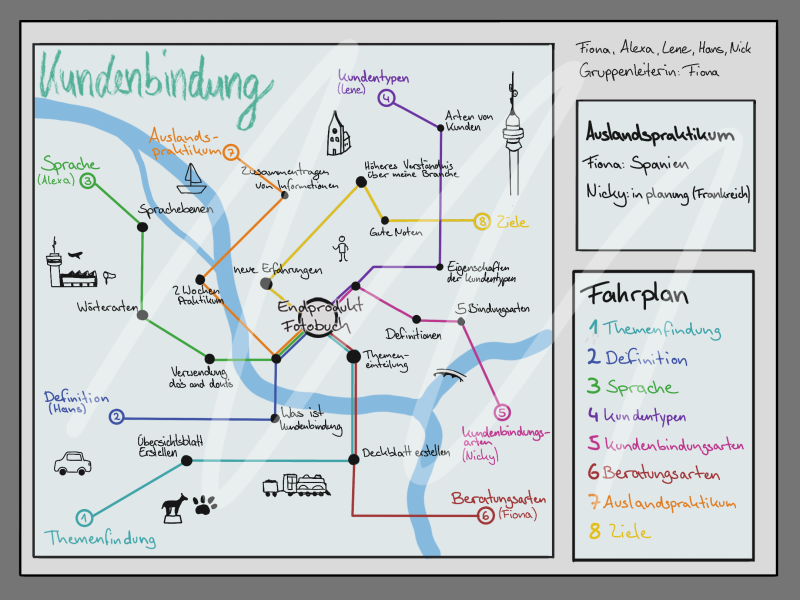 Kundenbindung
Kundentypen
(Lene)
4
Arten von
Kunden
Auslands-
praktikum 7
Zusammentragen
von Informationen
Höheres Verständnis
über meine Branche
Sprache
(Alexa) 3
Sprachebenen
8 Ziele
Gute Noten
neue Erfahrungen
Eigenschaften
der Kundentypen
2 Wochen
Praktikum
Wörterarten
Endprodukt
Fotobuch
5 Bindungsarten
Definitionen
Themen-
einteilung
Verwendung
do's and donts
Definition
(Hans)
2
Was ist
Kundenbindung
5
Kundenbindungs-
arten
(Nicky)
Übersichtsblatt
Erstellen
Deckblatt erstellen
1
Themenfindung
Beratungsarten
6 (Fiona)
Fiona, Alexa, Lene, Hans, Nick
Gruppenleiterin: Fiona
Auslandspraktikum
Fiona: Spanien
Nicky: in planung (Frankreich)
Fahrplan
1 Themenfindung
2 Definition
3 Sprache
4 Kundentypen
5 Kundenbindungsarten
6 Beratungsarten
7 Auslandspraktikum
8 Ziele